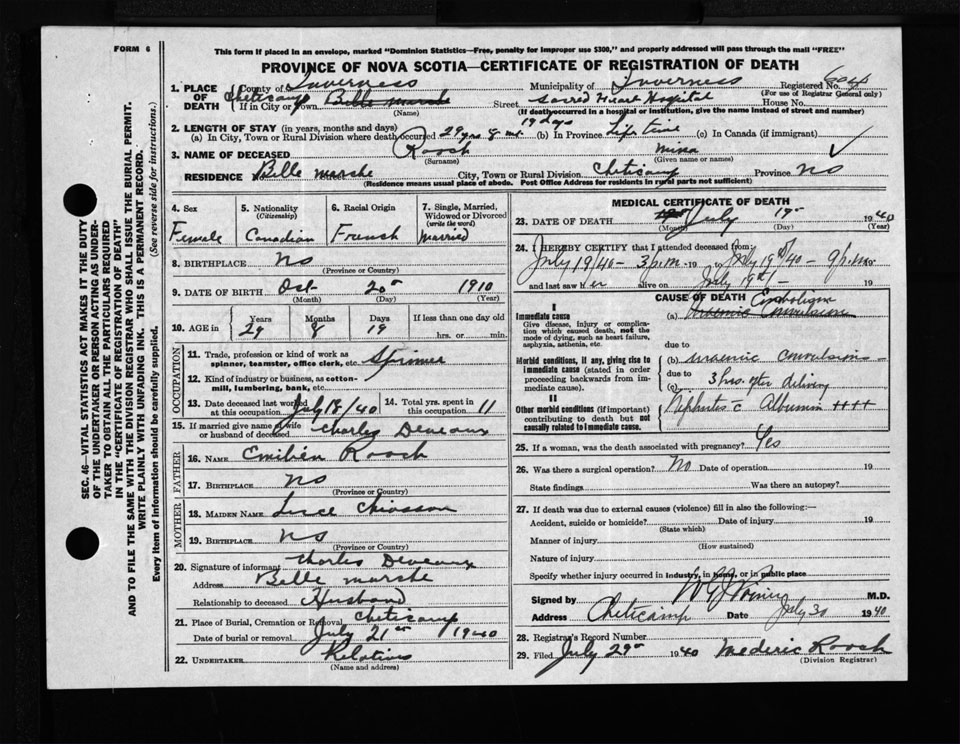 FORM 6
This form if placed in an envelope, marked "Dominion Statistics—Free, penalty for improper use $300," and properly addressed will pass through the mail "FREE"
PROVINCE OF NOVA SCOTIA—CERTIFICATE OF REGISTRATION OF DEATH
1. PLACE OF DEATH County of Inverness Municipality of Inverness Registered No.
(For use of Registrar General only)
If in City or Town Cheticamp Belle Marshe Street Sacred Heart Hospital House No.
(Name) (If death occurred in a hospital or institution, give the name instead of street and number)
2. LENGTH OF STAY (in years, months and days) 19 days
(a) In City, Town or Rural Division where death occurred 29 yrs 8 mt. (b) In Province Life time (c) In Canada (if immigrant)
3. NAME OF DECEASED Roach Mina
(Surname) (Given name or names)
RESIDENCE No. Belle Marshe Street City, Town or Rural Division Cheticamp Province NS
(Residence means usual place of abode. Post Office Address for residents in rural parts not sufficient)
4. Sex Female
5. Nationality (Citizenship) Canadian
6. Racial Origin French
7. Single, Married, Widowed or Divorced (write the word) Married
8. BIRTHPLACE NS
(Province or Country)
9. DATE OF BIRTH Oct 20 1910
(Month) (Day) (Year)
10. AGE in Years 29 Months 8 Days 19 If less than one day old hrs. or min.
OCCUPATION
11. Trade, profession or kind of work as spinner, teamster, office clerk, etc. Spinner
12. Kind of industry or business, as cotton-mill, lumbering, bank, etc.
13. Date deceased last worked at this occupation July 18/40 14. Total yrs. spent in this occupation 11
15. If married give name of wife or husband of deceased Charles Deveaux
FATHER
16. NAME Emilien Roach
17. BIRTHPLACE NS
(Province or Country)
MOTHER
18. MAIDEN NAME Luce Chiasson
19. BIRTHPLACE NS
(Province or Country)
20. Signature of informant Charles Deveaux
Address Belle Marshe
Relationship to deceased Husband
21. Place of Burial, Cremation or Removal Cheticamp
Date of burial or removal July 21st 1940
22. UNDERTAKER Relatives
(Name and address)
MEDICAL CERTIFICATE OF DEATH
23. DATE OF DEATH July 19 1940
(Month) (Day) (Year)
24. I HEREBY CERTIFY that I attended deceased from:
July 19/40 - 3 p.m. 19 to July 19th/40 - 9 p.m. 19
and last saw her alive on July 19th 19
CAUSE OF DEATH
I
Immediate cause
Give disease, injury or complication which caused death, not the mode of dying, such as heart failure, asphyxia, asthenia, etc.
(a) Embolism Uraemic Convulsion
due to
Morbid conditions, if any, giving rise to immediate cause (stated in order proceeding backwards from immediate cause).
(b) uraemic convulsions
due to
(c) 3 hrs. after delivery
II
Other morbid conditions (if important) contributing to death but not causally related to immediate cause.
Nephritis c Albumin ++++
25. If a woman, was the death associated with pregnancy? Yes
26. Was there a surgical operation? No Date of operation 19
State findings Was there an autopsy?
27. If death was due to external causes (violence) fill in also the following:—
Accident, suicide or homicide? Date of injury 19
(State which)
Manner of injury
(How sustained)
Nature of injury
Specify whether injury occurred in industry, in home, or in public place
Signed by M.D.
Address Cheticamp Date July 30 1940
28. Registrar's Record Number
29. Filed July 29 1940 Mederic Roach
(Division Registrar)
SEC. 46—VITAL STATISTICS ACT MAKES IT THE DUTY
OF THE UNDERTAKER OR PERSON ACTING AS UNDERTAKER TO OBTAIN ALL THE PARTICULARS REQUIRED
IN THE "CERTIFICATE OF REGISTRATION OF DEATH"
AND TO FILE THE SAME WITH THE DIVISION REGISTRAR WHO SHALL ISSUE THE BURIAL PERMIT.
WRITE PLAINLY WITH UNFADING INK. THIS IS A PERMANENT RECORD.
Every item of information should be carefully supplied. (See reverse side for instructions.)